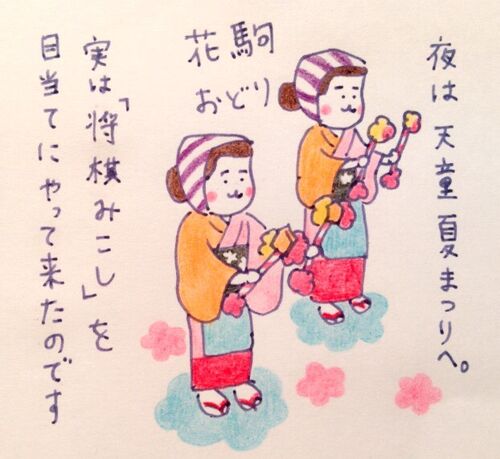 夜は天童夏まつりへ。
花駒
おどり
実は「将棋みこし」を
目当てにやって来たのです